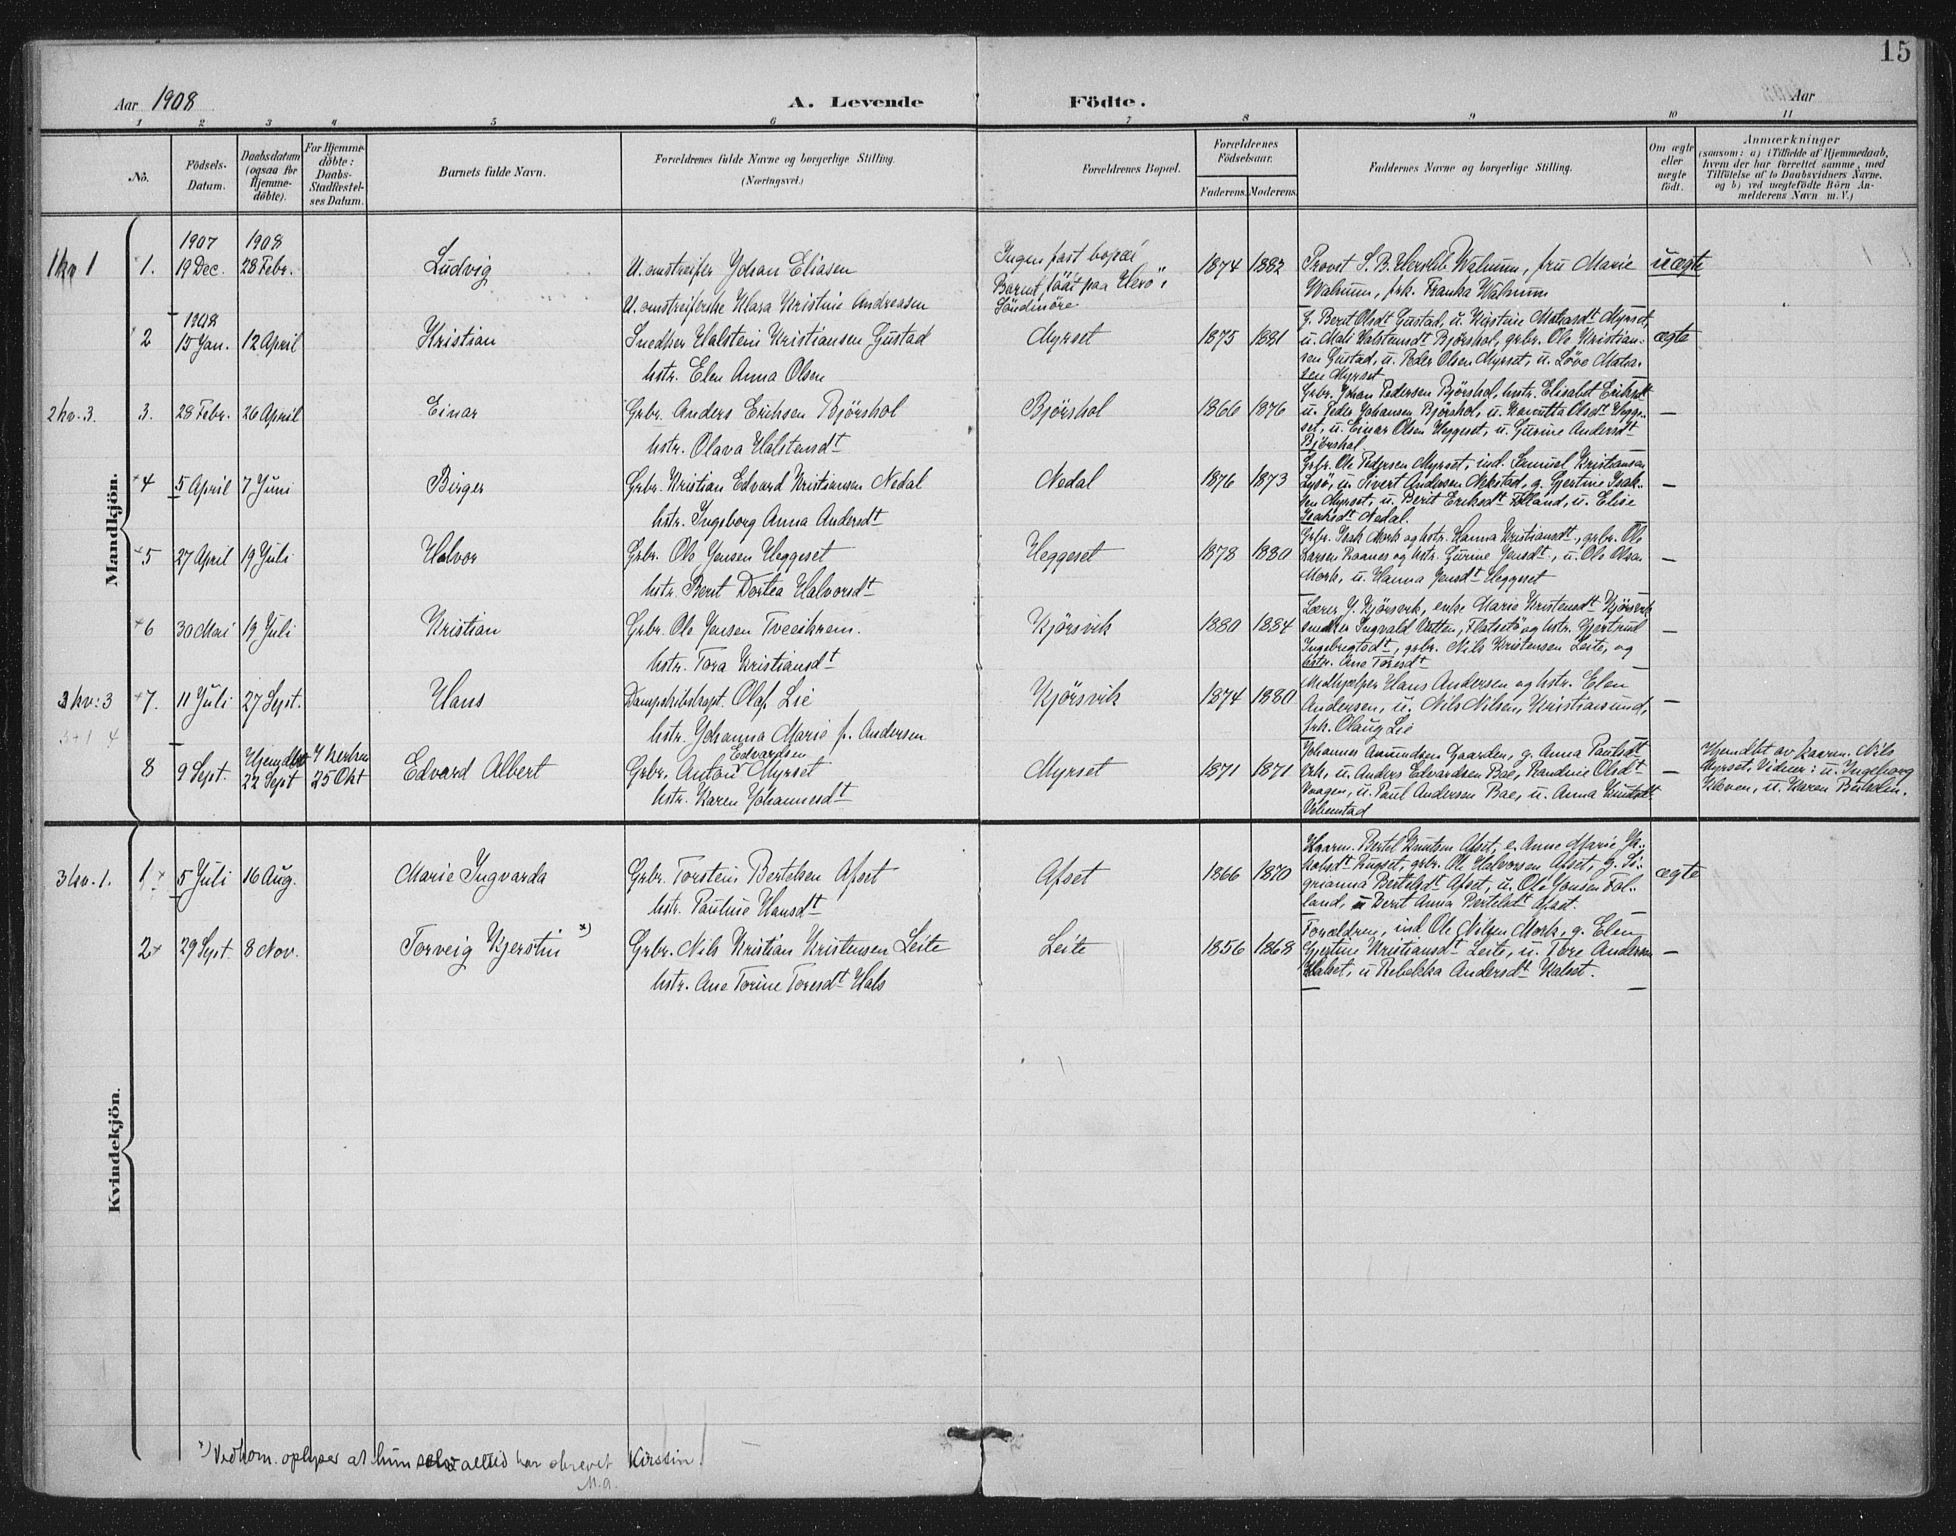 15
Aar 1908
A. Levende Födte.
Aar
1 2 3 4 5 6 7 8 9 10 11
No.
Födsels-Datum.
Daabsdatum (ogsaa for Hjemme-döbte).
For Hjemme-döbte: Daabs-Stadfæstel-ses Datum.
Barnets fulde Navn.
Forældrenes fulde Navne og borgerlige Stilling. (Næringsvei.)
Forældrenes Bopæl.
Forældrenes Födselsaar.
Faderens. Moderens.
Faddernes Navne og borgerlige Stilling.
Om ægte eller uægte födt.
Anmærkninger
(saasom: a) i Tilfælde af Hjemmedaab, hvem der har forrettet samme, med Tilföielse af to Daabsvidners Navne. og b) ved uægtefödte Börn An-melderens Navn m. V.)
Mandkjön.
1 kv 1
1. 1907 19 Dec. 1908 28 Febr. Ludvig
U. omstreifer Johan Eliasen
U. omstreiferske Klara Kristine Andreasen
Ingen fast bopæl
Barnet födt paa Herö i
Söndmöre
1874 1882
Provst S. B. Hersleb Walnum, fru Marie
Walnum, frk. Franka Walnum
uægte
2 1908 15 Jan. 12 April Kristian
Snedker Halstein Kristiansen Gustad
hstr. Elen Anna Olsen
Myrset 1875 1881
g. Berit Olsdt Gustad, u. Kirstine Matiasdt Myrset,
u. Mali Halstensdt Bjørshol, grbr. Ole Kristian-
sen Gustad, u. Peder Olsen Myrset, u. Løve Matia-
sen Myrset
ægte
2 kv. 3.
3. 28 Febr. 26 April Einar
Grbr. Anders Erichsen Bjørshol
hstr. Olava Halstensdt
Bjørshol 1866 1876
Grbr. Johan Pedersen Bjørshol, hstr. Elisabet Eriksdt
u. Peder Johansen Bjørshol, u. Olsdt Hegge-
set, u. Einar Olsen Heggeset, u. Gurine Andersdt
Bjørshol
—
4 5 April 7 Juni Birger
Grbr. Kristian Edvard Kristiansen Nedal
hstr. Ingeborg Anna Andersdt
Nedal 1876 1873
Grbr. Ole Pedersen Myrset, ind. Samuel Kristiansen
u. Sivert Andersen, g. Gjertine Isak-
sen Myrset, u. Berit Eriksdt, u. Elise
Isaksdt Nedal.
—
5 27 April 19 Juli Halvor
Grbr. Ole Jensen Heggeset
hstr. Berit Dortea Halvorsdt
Heggeset 1878 1880
Grbr. Isak Mork og hstr. Hanna Kristiansdt, grbr. Ole
Larsen Raanes og hstr. Gurine Jensdt, u. Ole Olsen
Mork, u. Hanna Jensdt Heggeset
—
6 30 Mai 19 Juli Kristian
Grbr. Ole Jensen Tveeikrem.
hstr. Tora Kristiansdt
Kjörsvik 1880 1884
Lærer J. Kjörsvik, enke Marie Kristensdt Kjörsvik
snedker Ingvald Vatten, Flatsetö og hstr. Gjertrud
Ingebrigtsdt, grbr. Nils Kristensen Leite, og
hstr. Ane Toresdt
—
3 kv: 3
3+1 4
7. 11 Juli 27 Sept. Hans
Dampskibskapt. Olaf Lie
hstr. Johanna Marie f. Andersen
Kjörsvik 1874 1880
Medhjelper Hans Andersen og hstr. Elen
Andersen, u. Nils Nilsen, Kristiansund,
frk. Olaug Lie
—
8 9 Sept. Hjemdbt 22 Sept I kirken 25 Okt Edvard Albert
Grbr. Anton Edvardsen Myrset
hstr. Karen Johannesdt
Myrset 1871 1871
Johannes Amundsen Gaarden, g. Anna Paulsdt
Ork, u. Anders Edvardsen Bae, Randine Olsdt
Vaagen, u. Paul Andersen Bae, u. Anna Knutsdt
—
Hjemdbt av Nils
Myrset. Vidner: u. Ingeborg
Kleven, u. Karen
Kvindekjön.
3 kv. 1.
1 5 Juli 16 Aug. Marie Ingvarda
Grbr. Torstein Bertelsen Afset
hstr. Pauline Hansdt
Afset 1866 1870
Kaarm. Bertel Knutsen Afset, e. Anne Marie Ja-
kobsdt, grbr. Ole Halvorsen Afset, g. Si-
grianna Bertelsdt Afset, u. Ole Jonsen Fol-
land, u Berit Anna Bertelsdt Afset.
ægte
2 29 Sept 8 Nov. Torveig Kjerstin x)
Grbr. Nils Kristian Kristensen Leite
hstr. Ane Torine Toresdt Hals
Leite 1856 1868
Forældrene, ind Ole Nilsen Mork, g. Elen
Gjertine Kristiansdt Leite, u. Tore Andersen
Halset, u Rebekka Andersdt Halset.
—
x) Vedkom. oplyser at hun selv alltid har skrevet Kirstin.
M.a.